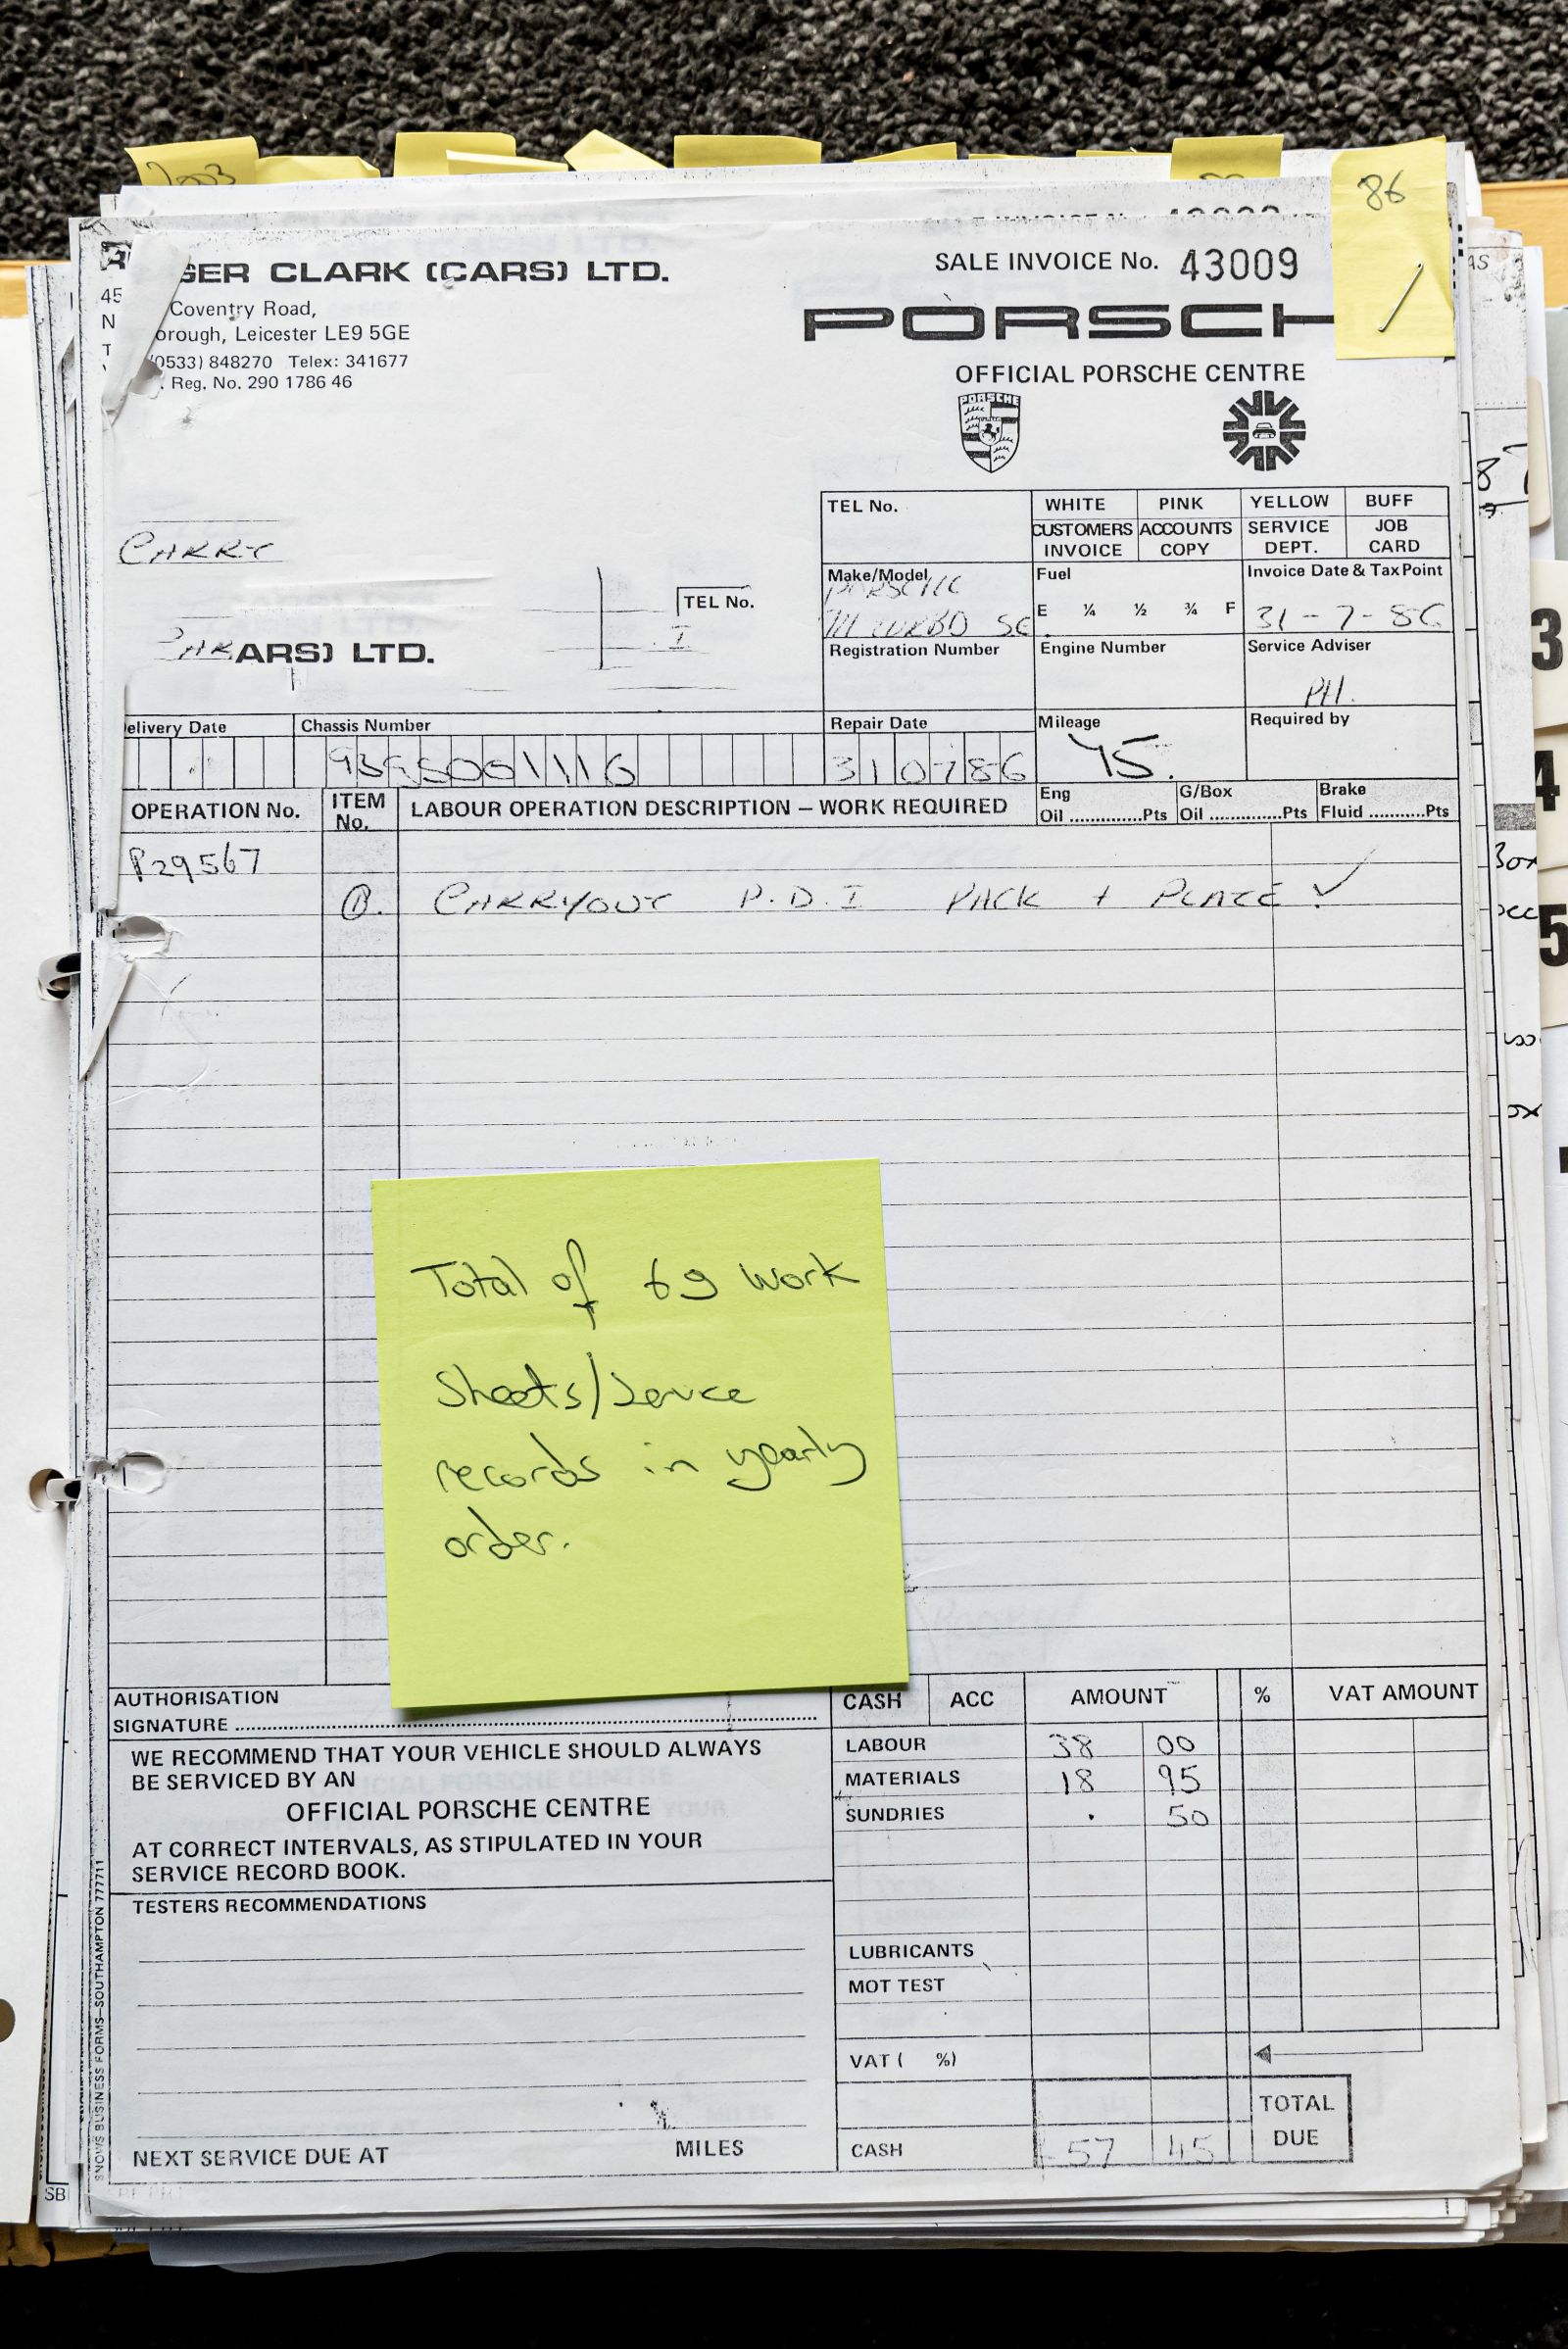 2003
86
SALE INVOICE No. 43009
GER CLARK (CARS) LTD.
45
Coventry Road,
N
orough, Leicester LE9 5GE
T
(0533) 848270 Telex: 341677
Reg. No. 290 1786 46
PORSCH
OFFICIAL PORSCHE CENTRE
PORSCHE
CARRY
TEL No.
ARS) LTD.
TEL No.
WHITE PINK YELLOW BUFF
CUSTOMERS INVOICE
ACCOUNTS COPY
SERVICE DEPT.
JOB CARD
Make/Model
PORSCHE
TURBO SE
Fuel
E ¼ ½ ¾ F
Invoice Date & Tax Point
31-7-86
Registration Number
Engine Number
Service Adviser
PH.
elivery Date
Chassis Number
Repair Date
310786
Mileage
Required by
OPERATION No.
ITEM No.
LABOUR OPERATION DESCRIPTION – WORK REQUIRED
Eng Oil .............Pts
G/Box Oil .............Pts
Brake Fluid ...........Pts
P29567
CARRYOUT P.D.I PACK + PLATE ✓
Total of 69 work
Sheets/Service
records in yearly
order.
AUTHORISATION
SIGNATURE
WE RECOMMEND THAT YOUR VEHICLE SHOULD ALWAYS
BE SERVICED BY AN
OFFICIAL PORSCHE CENTRE
AT CORRECT INTERVALS, AS STIPULATED IN YOUR
SERVICE RECORD BOOK.
TESTERS RECOMMENDATIONS
NEXT SERVICE DUE AT MILES
CASH ACC AMOUNT % VAT AMOUNT
LABOUR 38 00
MATERIALS 18 95
SUNDRIES . 50
LUBRICANTS
MOT TEST
VAT ( %)
TOTAL
DUE
CASH 57 45
SNOWS BUSINESS FORMS—SOUTHAMPTON 777711
3
4
5